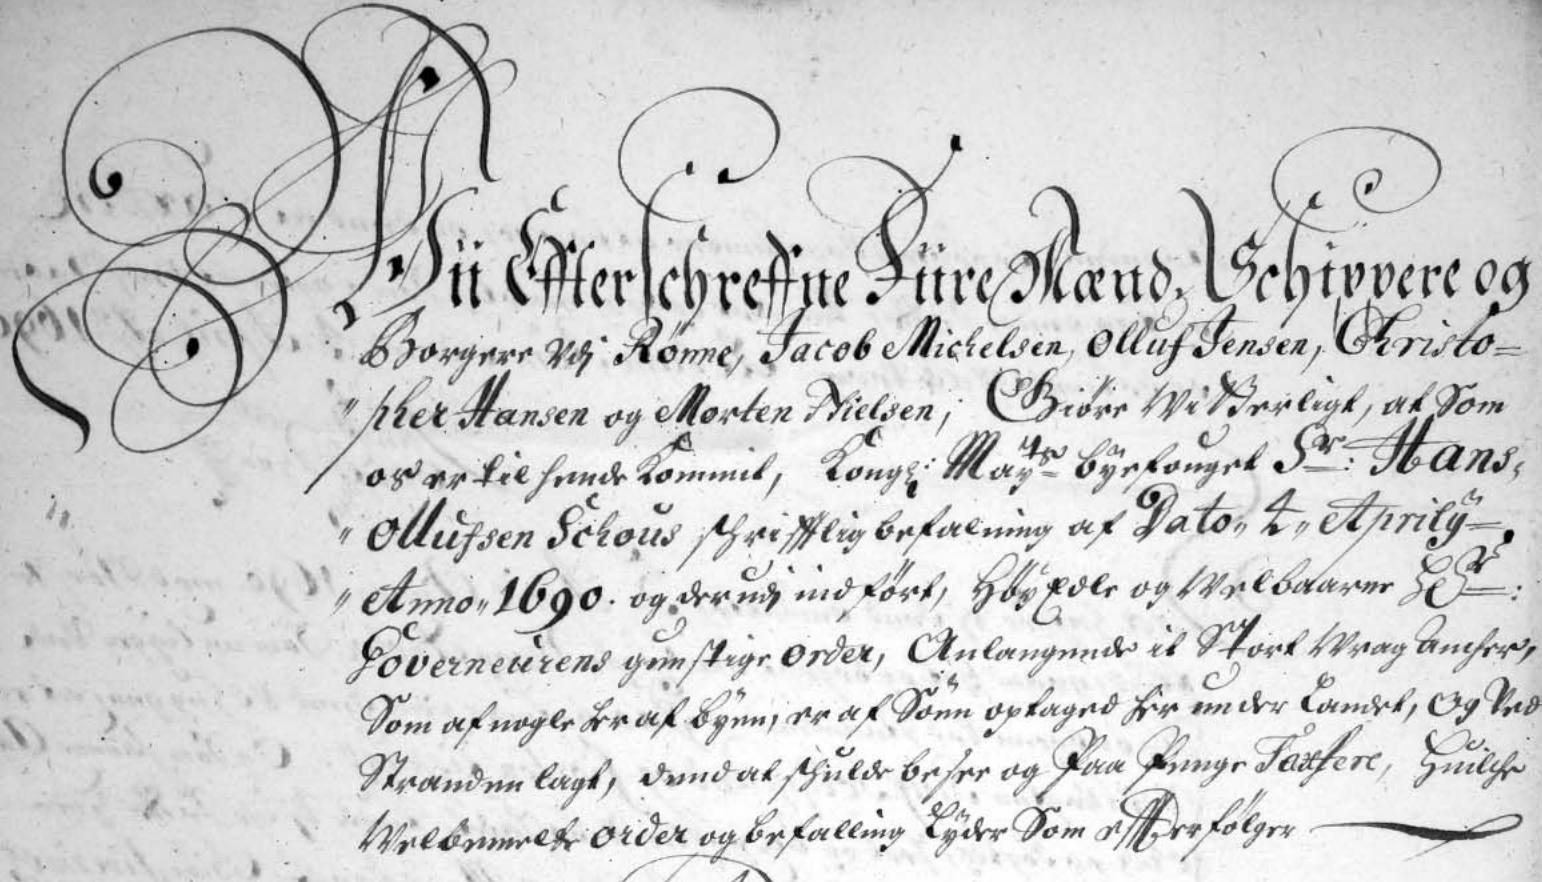 Wii Effterschreffne Fiire Mænd, Schippere og
Borgere Vdj Rönne, Jacob Michelsen, Olluf Jensen, Christo=
" pher Hansen og Morten Nielsen, Giöre Witterligt, at Som
os er til hende Kommit, Kong: Mayts byefouget Sr: Hans,
" Ollufsen Schous schrifftlig befalning af Dato" 2" Aprilÿ
" Anno" 1690. og derudj indfört, HöyEdle og Welbaarne Hr:
Gouverneurens gunstige order, Anlangende it Stort Wrag Ancher,
Som af nogle her af byen, er af Söen optaged her under Landet, og Ved
Stranden lagt, dend at schulde besee og Paa Penge Taxere, Huilche
Welbemelte order og befalling Lyder Som effterfölger